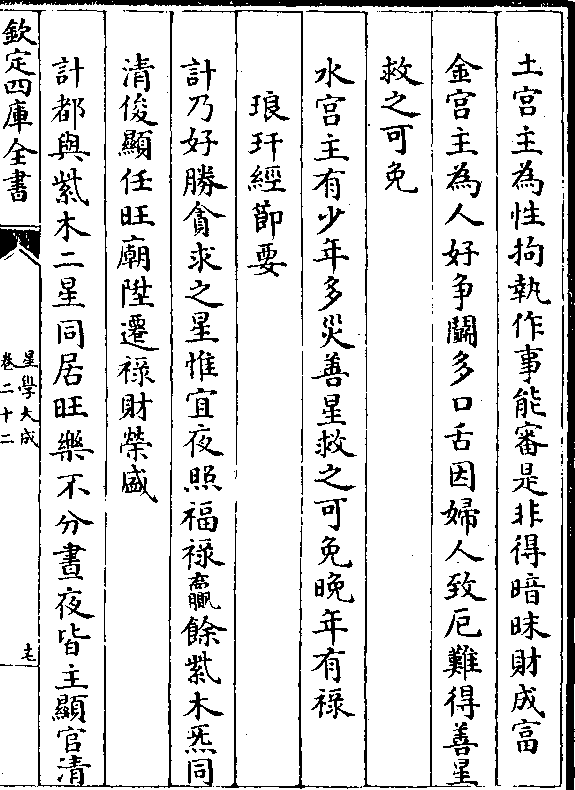 土宮主為性拘執作事能審是非得暗昧財成富
金宮主為人好爭鬭多口舌因婦人致厄難得善星
救之可免
水宮主有少年多災善星救之可免晚年有祿
琅玕經節要
計乃好勝貪求之星惟宜夜照福祿贏餘紫木旣同
清俊顯任旺廟陞遷祿財榮盛
計都與紫木二星同居旺樂不分晝夜皆主顯官清
欽定四庫全書
星學大成
卷二十二